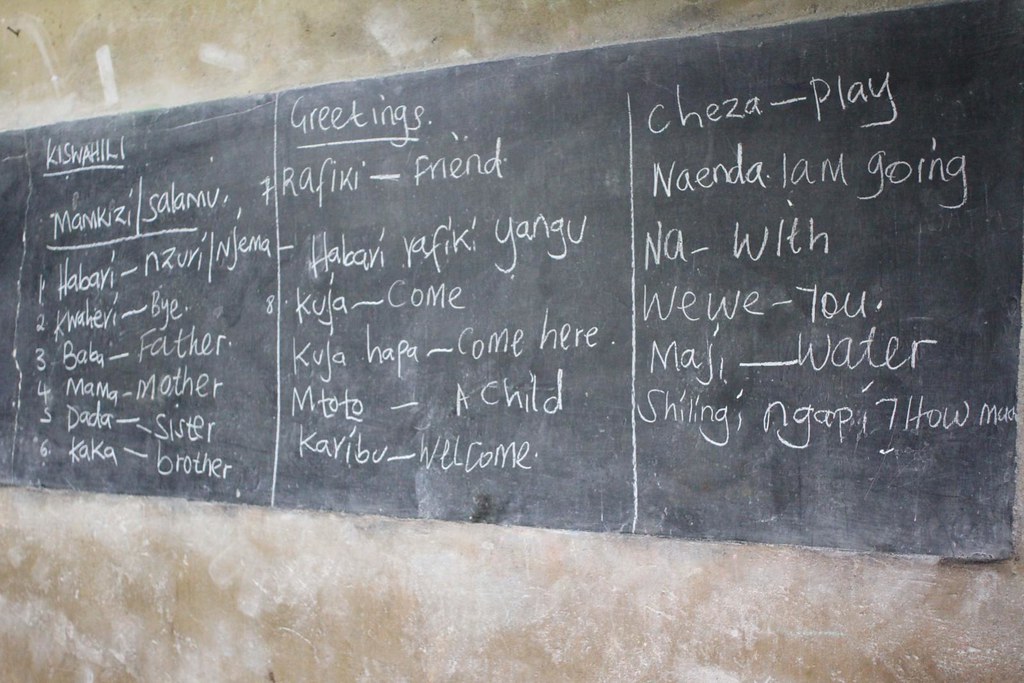 KISWAHILI
Mamkizi/salamu.
1. Habari - nzuri/Njema -
2. Kwaheri - Bye.
3 Baba - Father.
4 Mama - mother
5 Dada - Sister
6. Kaka - brother
Greetings.
7 Rafiki - Friend
Habari rafiki yangu
8. Kuja - Come
Kuja hapa - Come here.
Mtoto - A Child
Karibu - WelCome.
Cheza - Play
Naenda I am going
Na - With
Wewe - You.
Maji - Water
Shilingi ngapi ? How much